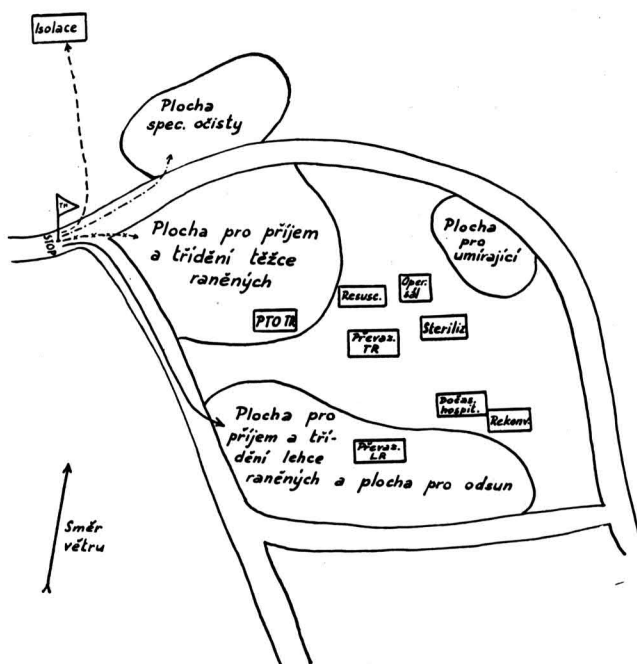 Isolace
Plocha
spec. očisty
STOP
Plocha pro příjem
a třídění těžce
raněných
PTO TR
Plocha
pro
umírající
Resusc.
Oper.
sál
Převaz.
TR
Steriliz
Dočas.
hospit.
Rekonv.
Plocha pro
příjem a tří-
dění lehce
raněných a plocha pro odsun
Převaz.
LR
Směr
větru